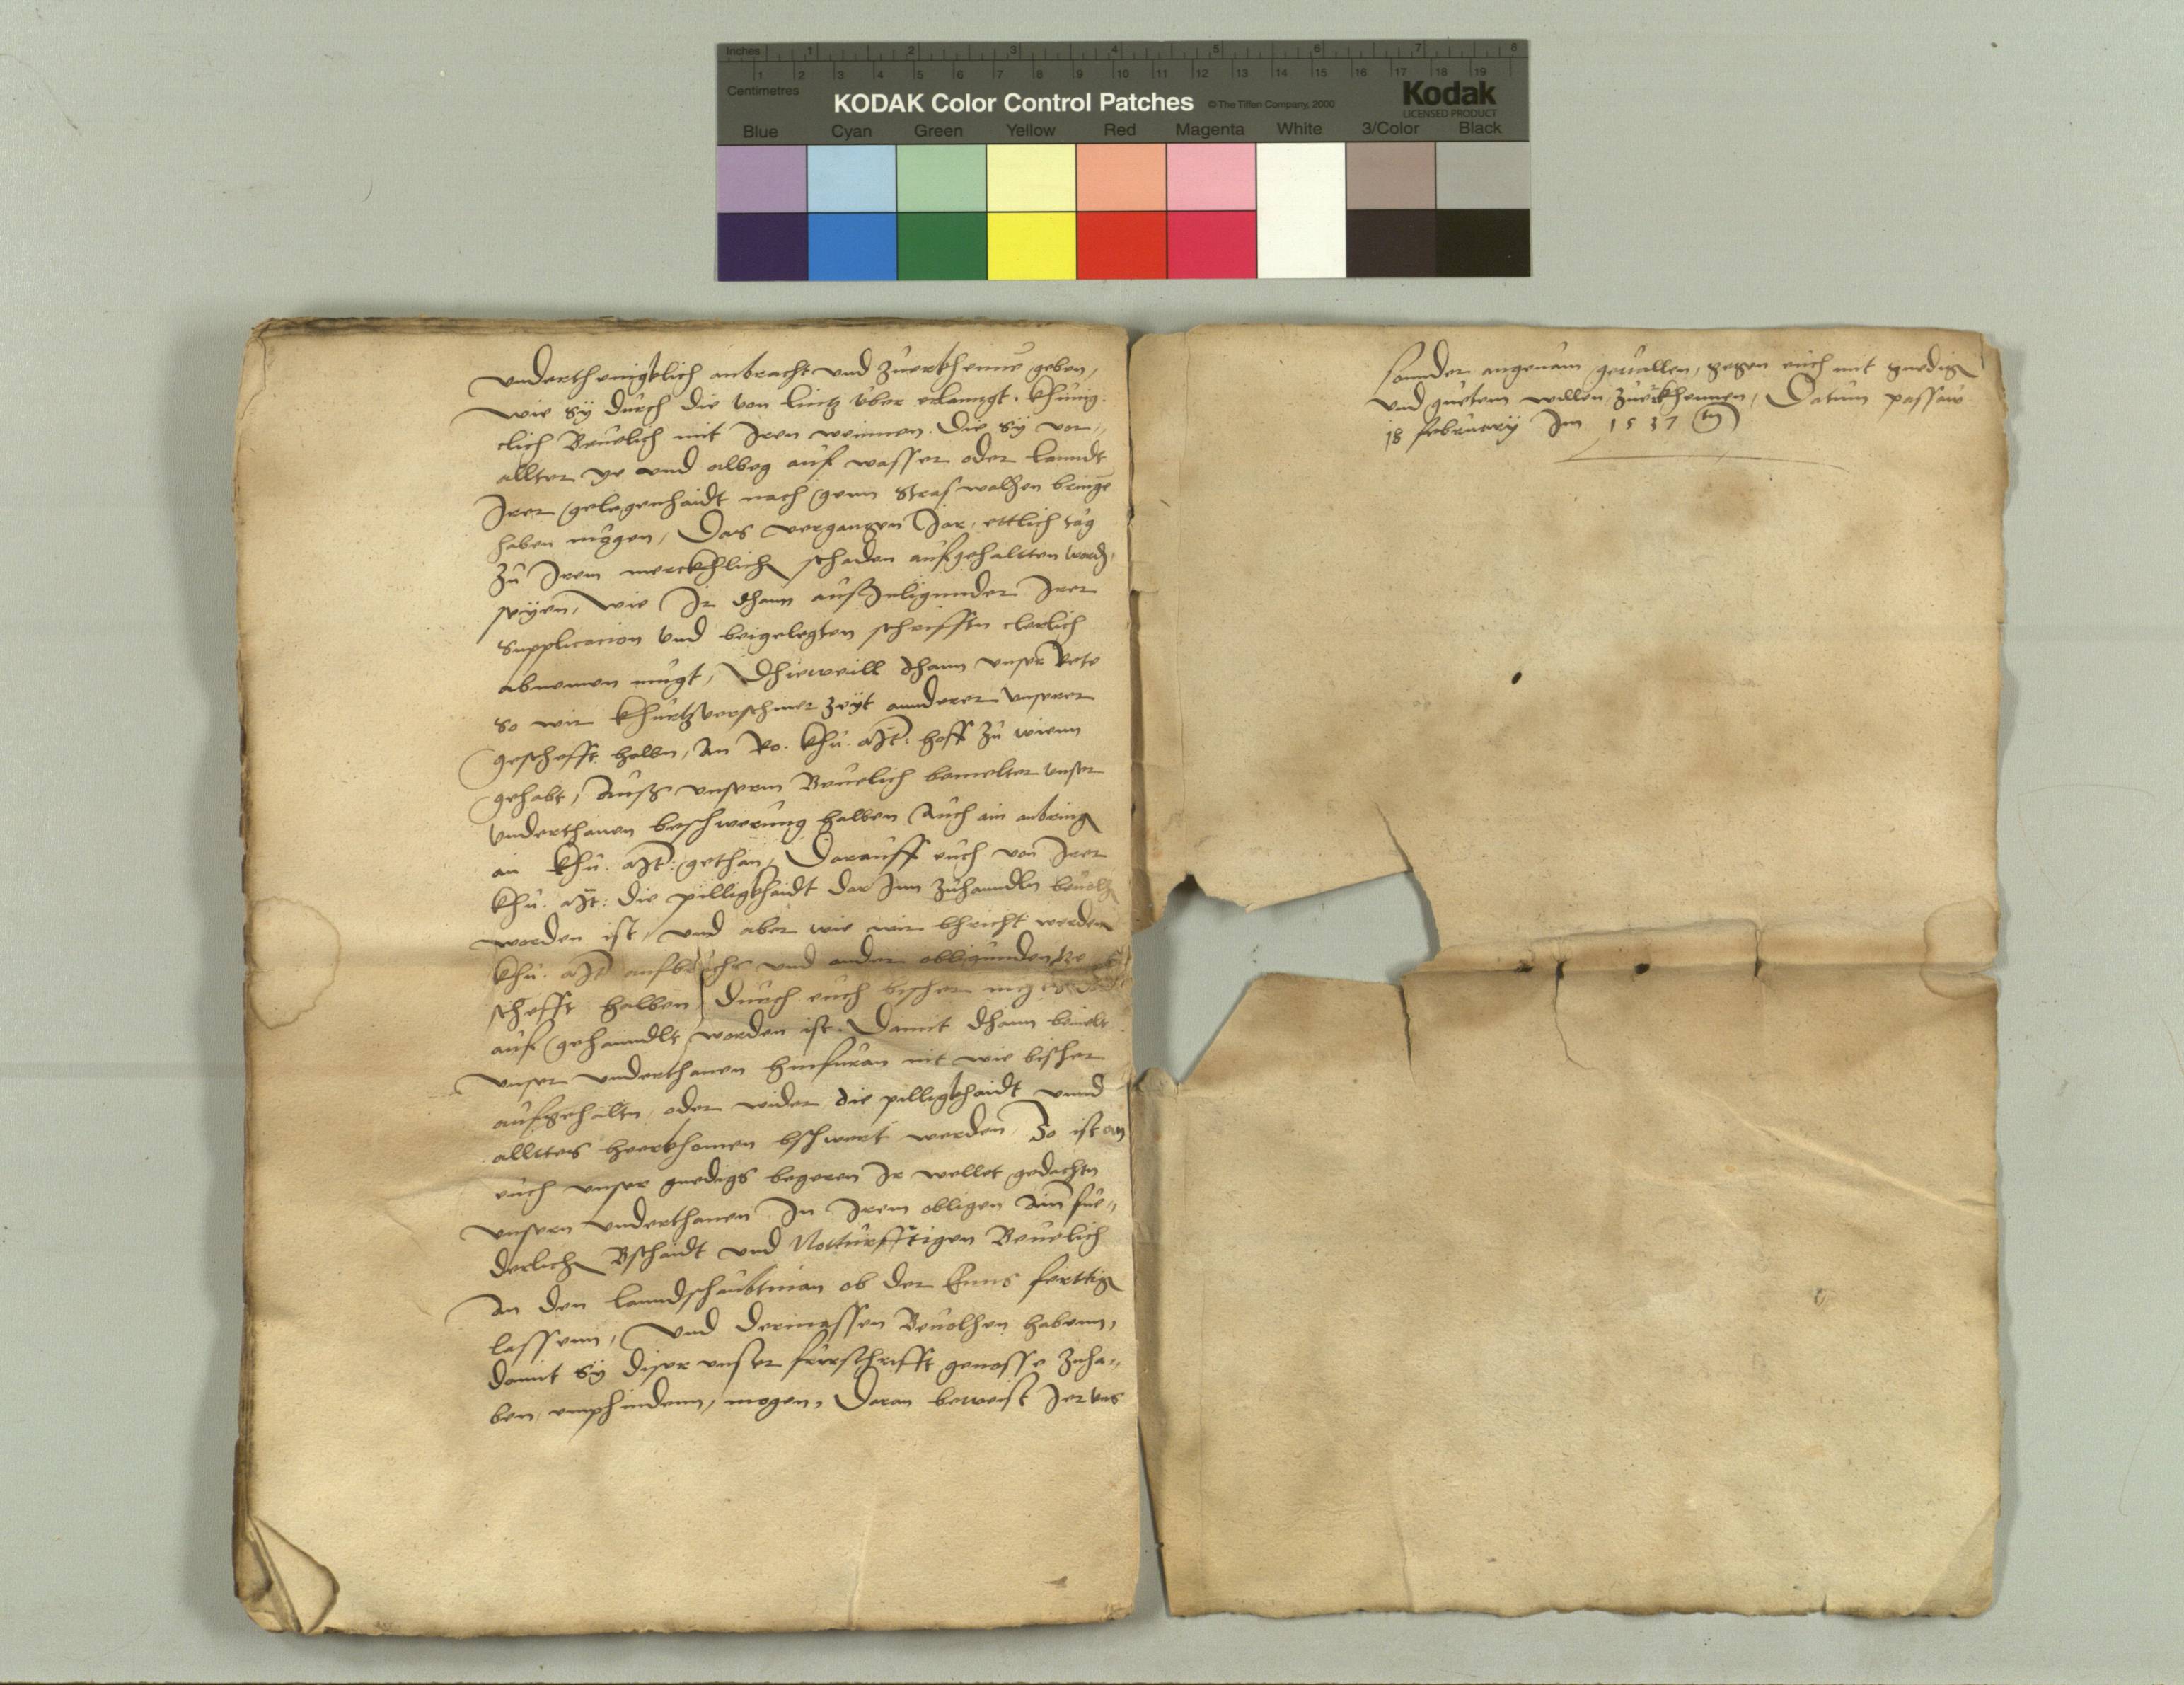 Inches 1 2 3 4 5 6 7 8
Centimetres 1 2 3 4 5 6 7 8 9 10 11 12 13 14 15 16 17 18 19
KODAK Color Control Patches © The Tiffen Company, 2000 Kodak
LICENSED PRODUCT
Blue Cyan Green Yellow Red Magenta White 3/Color Black
underthenigklich anbracht und zuerkhenne geben,
wie sÿ durch die von Lintz uber erlanngt. khünig-
clich Bevelich mit Iren weinnen. die sÿ von
allter ye und albeg auf wasser oder lanndt
Irer gelegenhaidt nach genn Straswalhen bringe
haben mügen, Das vergangen Jar, ettlich täg
zu Irem merckhlich schaden aufgehaltten word,
seÿen, wie Ir dhann auß Inligunder Irer
Supplicacion und beigelegten schrifften clerlich
abnemen mügt, Dhieweill dhann unser Rete
so wir khurtzverschiner zeÿt annderer unserer
geschefft halbn, an Ro. khü. Mt. hoff zu wienn
gehabt, Auß unserm Bevelich bemelter unser
underthanen beschwerung halben Auch ain anbring
an khü. Mt. gethan, Darauff euch von Irer
khü. Mt. die pilligkhaidt dar Inn zuhanndln bevolh
worden ist, und aber wie wir bricht werden
khü. Mt. und ander obligunden
schefft halben durch euch bisher
auf gehanndlt worden ist. Damit dhann bemelt
unser underthanen hinfuran nit wie bisher
aufgehaltn, oder wider die pilligkhaidt unnd
allttes heerkhomen bschwert werden, So ist an
euch unser gnedigs begeren Ir wellet gedachtn
unsern underthanen In Irem obligen ain fue-
derlich Bschaidt und Notturfftigen Bevelich
an den lanndshaubtman ob der Enns ferttig
lassenn, und dermassen Bevolhen habenn,
damit sÿ diser unser fürschrifft genosse zuha-
ben, emphindenn, mogen, Daran beweist Ier uns
sonnder angenäm gevallen, gegen euch mit gnedig
und guetem willen zuerkhennen, Datum passaw
18 februarÿ Im 1537 tn